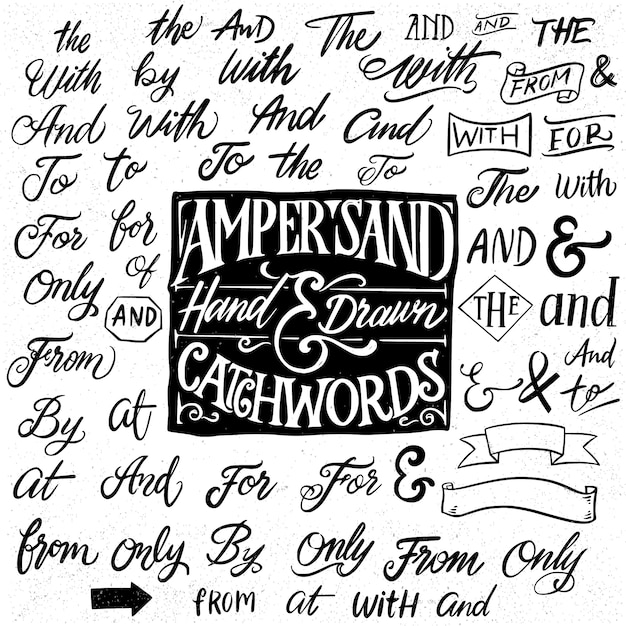 the the And The AND AND THE
With by With with FROM &
And With And and WITH FOR
To to To the To The with
For for AND &
of
Only AND THE and
AMPERSAND
Hand & Drawn
CATCHWORDS
From And
& & to
By at
at And For For &
from only By Only From Only
FROM at WITH and